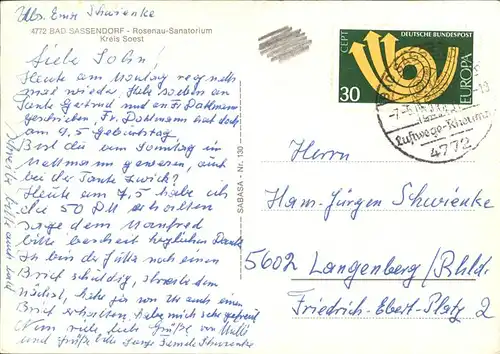 Abs. Erna Schwienke
4772 BAD SASSENDORF - Rosenau-Sanatorium
Kreis Soest
Liebe
Heute am Montag regnet's
mal wieder. Habe soeben an
Tante Gertrud und an Fr. Dahlmann
geschrieben, Fr. Dahlmann hat doch
am 9,5 Geburtstag.
Bist du am Sonntag in
Mettmann gewesen, auch
bei der Tante
Heute am 7,5 habe ich
die 50 DM erhalten
sage dem Manfred
bitte herzlichen Dank
Ich bin da Jutta noch einen
Brief schuldig,
nächst, habe ja von da auch einen
Brief erhalten, habe mich sehr gefreut
Nun viele liebe Grüße von Mutti
und grüße
Schreibe bitte auch bald
SABASA - Nr. 130
CEPT
DEUTSCHE BUNDESPOST
EUROPA
30
4772
Herrn
Hans-Jürgen Schwienke
5602 Langenberg/Rhld.
Friedrich-Ebert-Platz 2